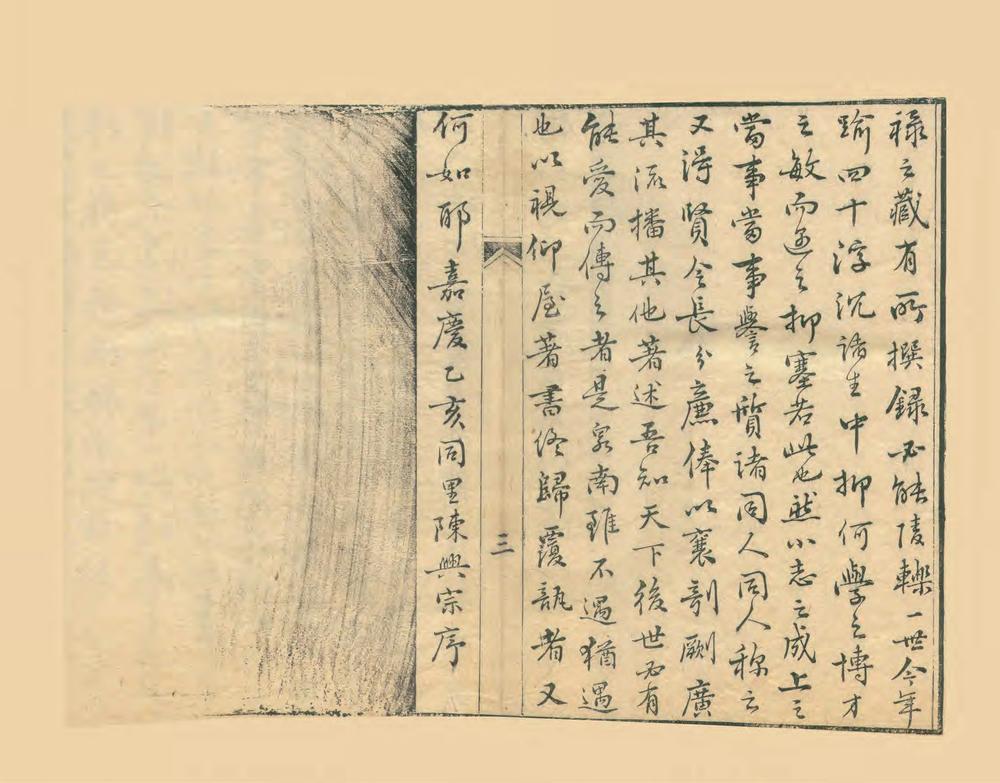 祿之藏有所撰錄必能陵轢一世今年
踰四十浮沉諸生中抑何學之博才
之敏而遇之抑塞若此也然小志之成上之
當事當事譽之質諸同人同人稱之
又得賢令長分廉俸以襄剞劂廣
其流播其他著述吾知天下後世必有
能愛而傳之者是泉南雖不遇猶遇
也以視仰屋著書終歸覆瓿者又
三
何如耶嘉慶乙亥同里陳興宗序